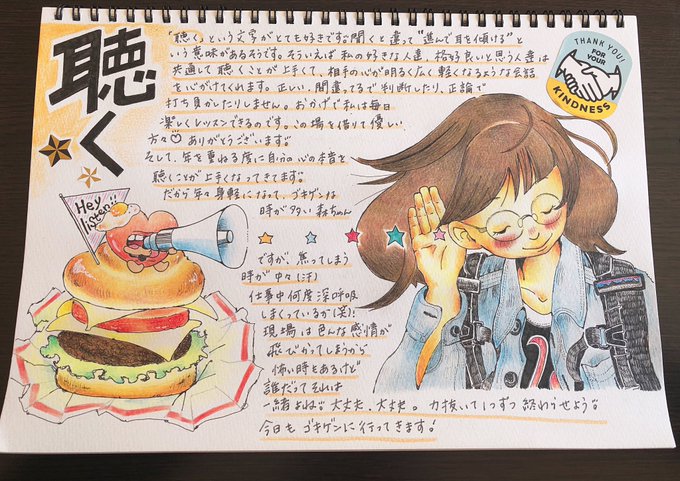 聴く
「聴く」という文字がとても好きです。聞くと違って"進んで耳を傾ける"と
いう意味があるそうです。そういえば私の好きな人達、格好良いと思う人達は
共通して聴くことが上手くて、相手の心が明るく広く軽くなるような会話
を心がけてくれます。正しい、間違ってるで判断したり、正論で
打ち負かしたりしません。おかげで私は毎日
楽しくレッスンできるのです。この場を借りて優しい
方々♡ありがとうございます。
そして、年を重ねる度に自分の心の本音を
聴くことが上手くなってきてます。
だから年々身軽になって、ゴキゲンな
時が多い森ちゃん
THANK YOU!
FOR
YOUR
KINDNESS
Hey
listen!!
ですが、焦ってしまう
時が中々(汗)
仕事中何度深呼吸
しまくっているか(笑)!
現場は色んな感情が
飛びかってしまうから
怖い時もあるけど
誰だってそれは
一緒よね。大丈夫、大丈夫。力抜いて1つずつ終わらせよう。
今日もゴキゲンに行ってきます!